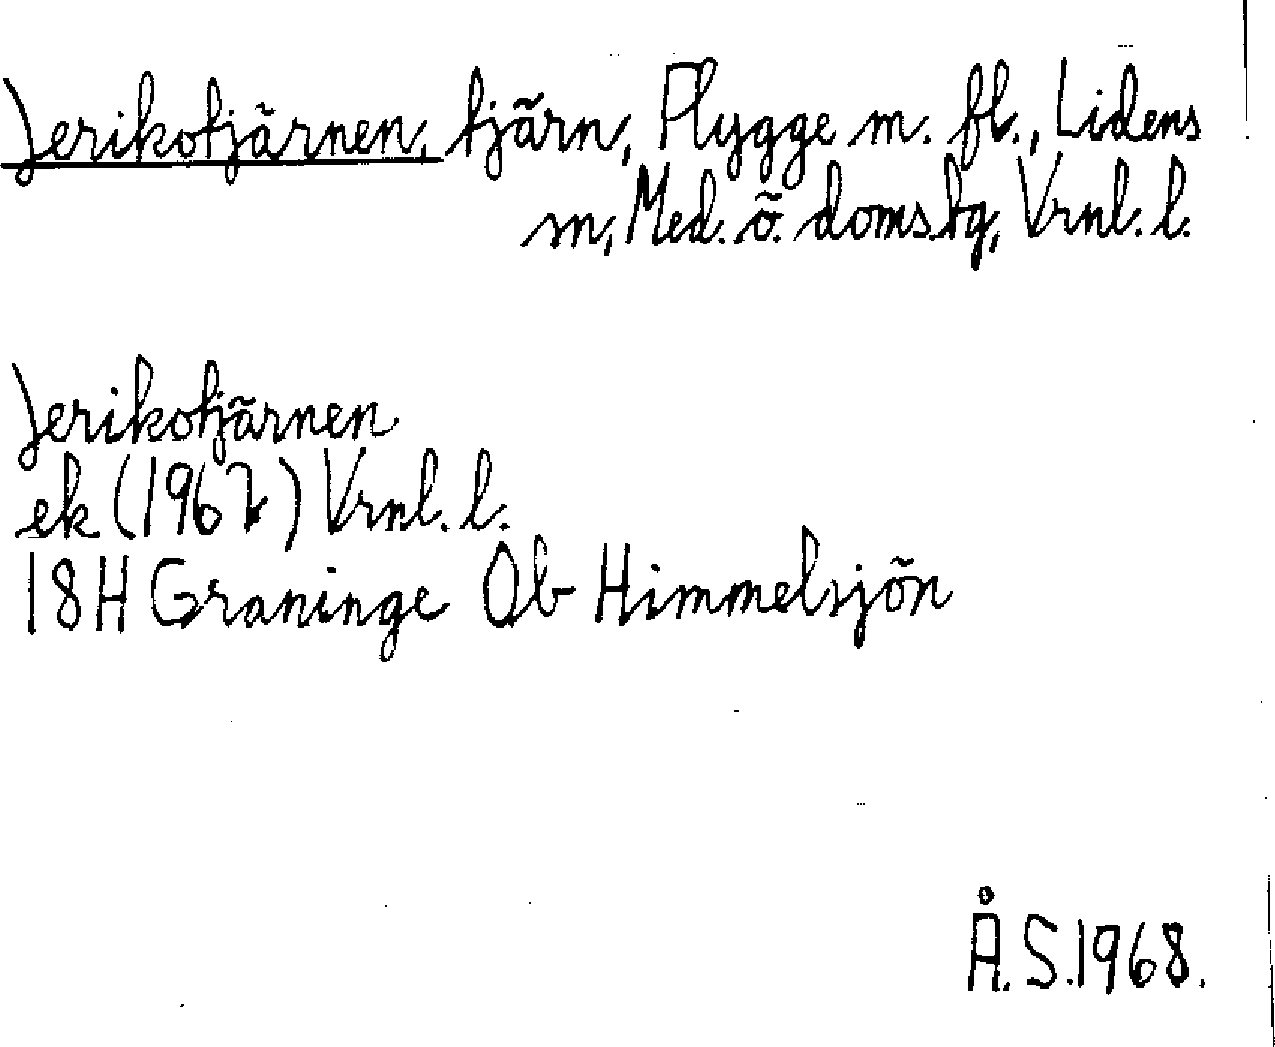 Jerikotjärnen, tjärn, Flygge m. fl., Lidens
m, Med. ö. doms.tg, Vrnl. l.
Jerikotjärnen
ek (1962) Vrnl. l.
18H Graninge Ob Himmelsjön
Å.S.1968.